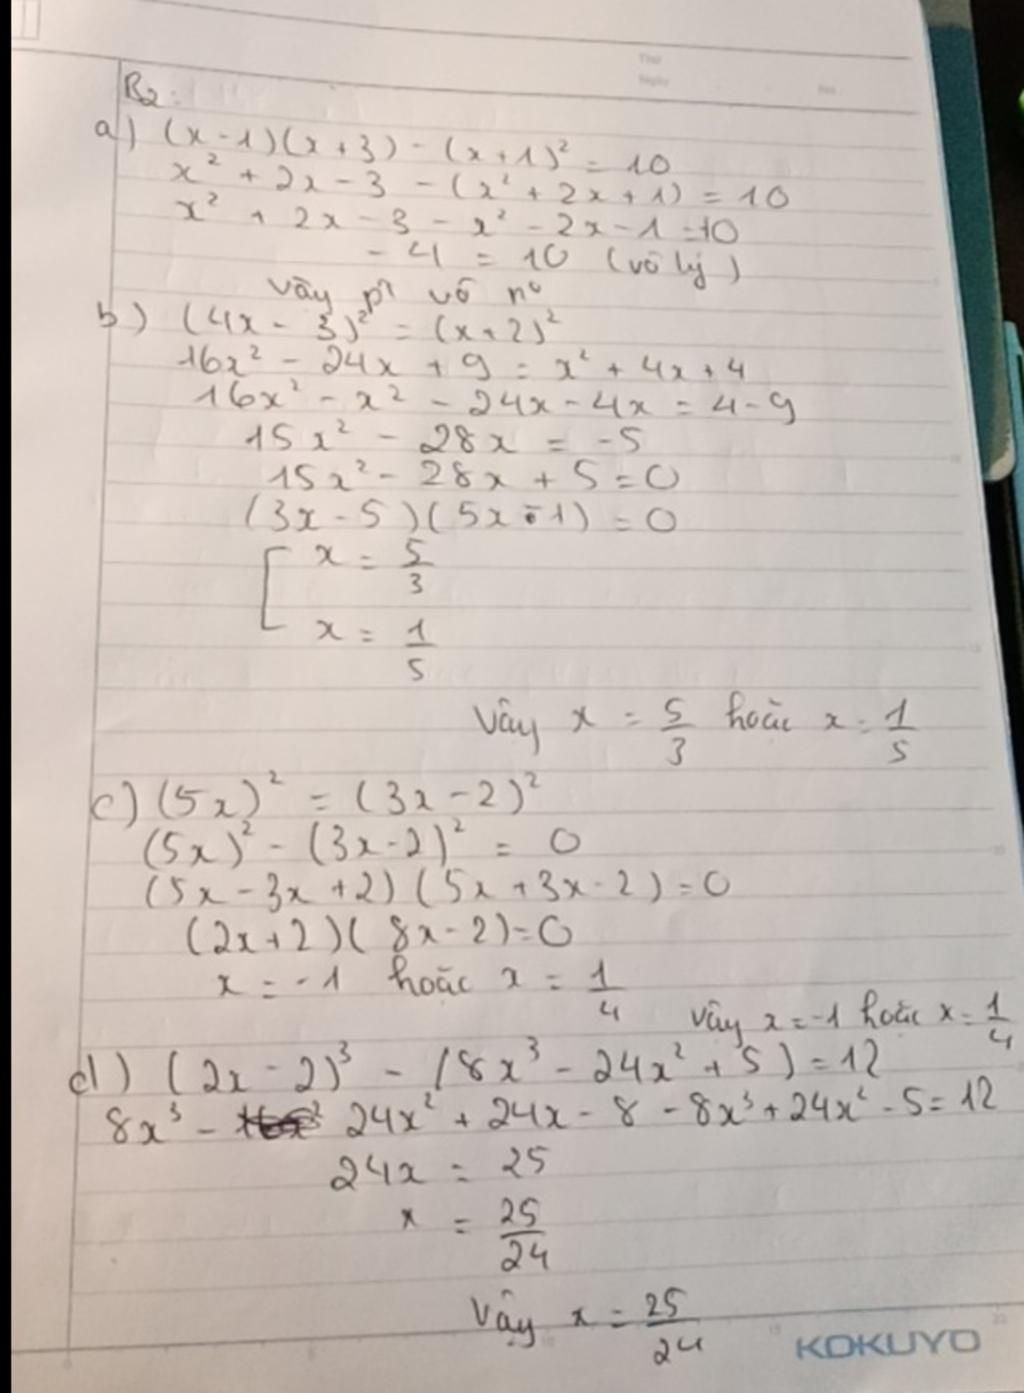 Thứ
Ngày
No.
B2:
a) (x-1)(x+3) - (x+1)² = 10
x² + 2x - 3 - (x² + 2x + 1) = 10
x² + 2x - 3 - x² - 2x - 1 = 10
- 4 = 10 (vô lý)
Vậy pt vô no
b) (4x - 3)² = (x+2)²
16x² - 24x + 9 = x² + 4x + 4
16x² - x² - 24x - 4x = 4 - 9
15x² - 28x = -5
15x² - 28x + 5 = 0
(3x - 5)(5x - 1) = 0
[ x = 5/3
x = 1/5
Vậy x = 5/3 hoặc x = 1/5
c) (5x)² = (3x - 2)²
(5x)² - (3x - 2)² = 0
(5x - 3x + 2)(5x + 3x - 2) = 0
(2x + 2)(8x - 2) = 0
x = -1 hoặc x = 1/4
Vậy x = -1 hoặc x = 1/4
d) (2x - 2)³ - (8x³ - 24x² + 5) = 12
8x³ - 24x² + 24x - 8 - 8x³ + 24x² - 5 = 12
24x = 25
x = 25/24
Vậy x = 25/24
KOKUYO